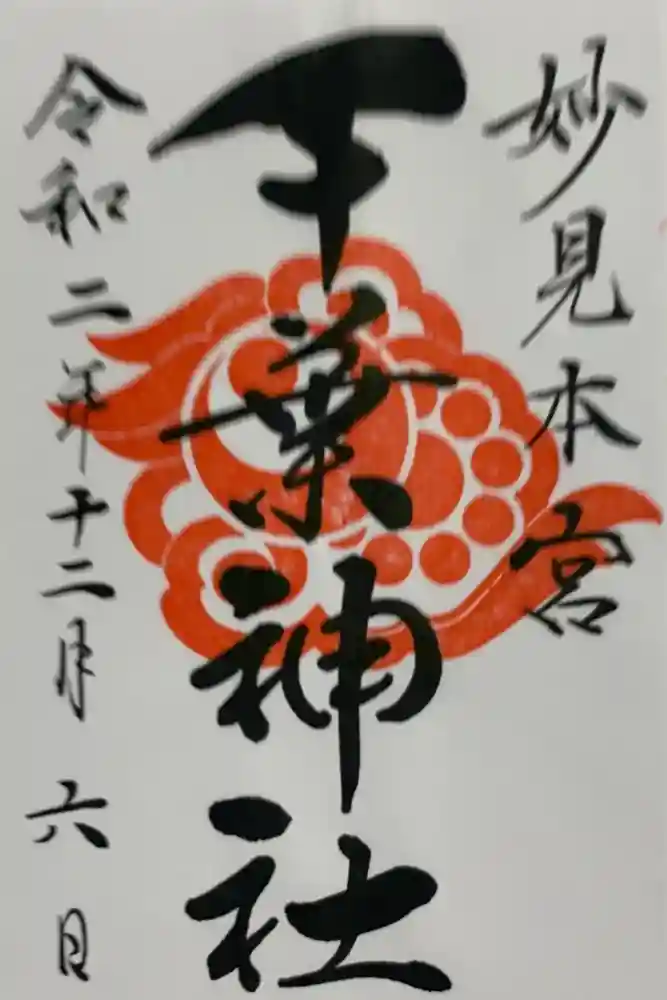 妙見本宮
千葉神社
令和二年十二月六日